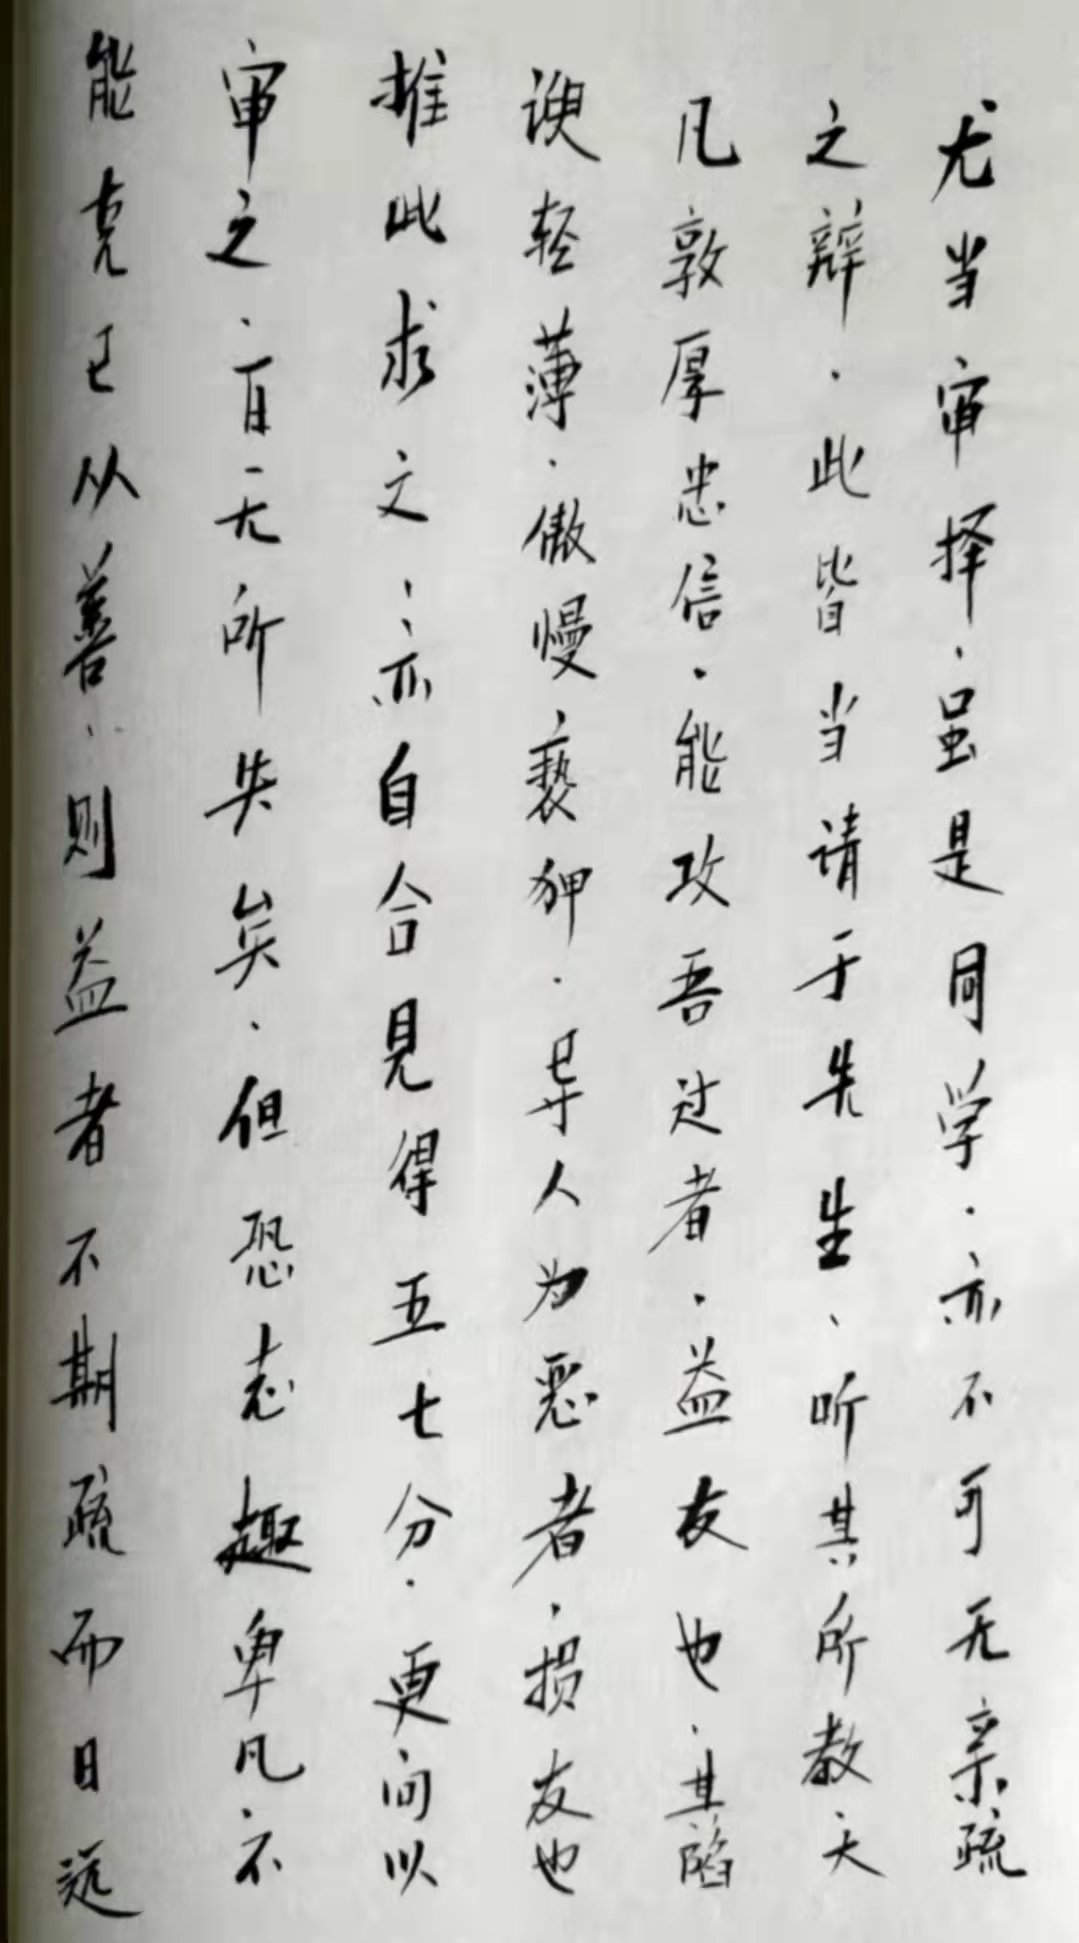 尤当审择.虽是同学.亦不可无亲疏
之辩.此皆当请于先生、听其所教.大
凡敦厚忠信.能攻吾过者.益友也.其陷
谀轻薄.傲慢亵狎.导人为恶者.损友也
推此求之.亦自合见得五七分.更问以
审之.百无所失矣.但恐志趣卑凡.不
能克已从善.则益者不期疏而日远